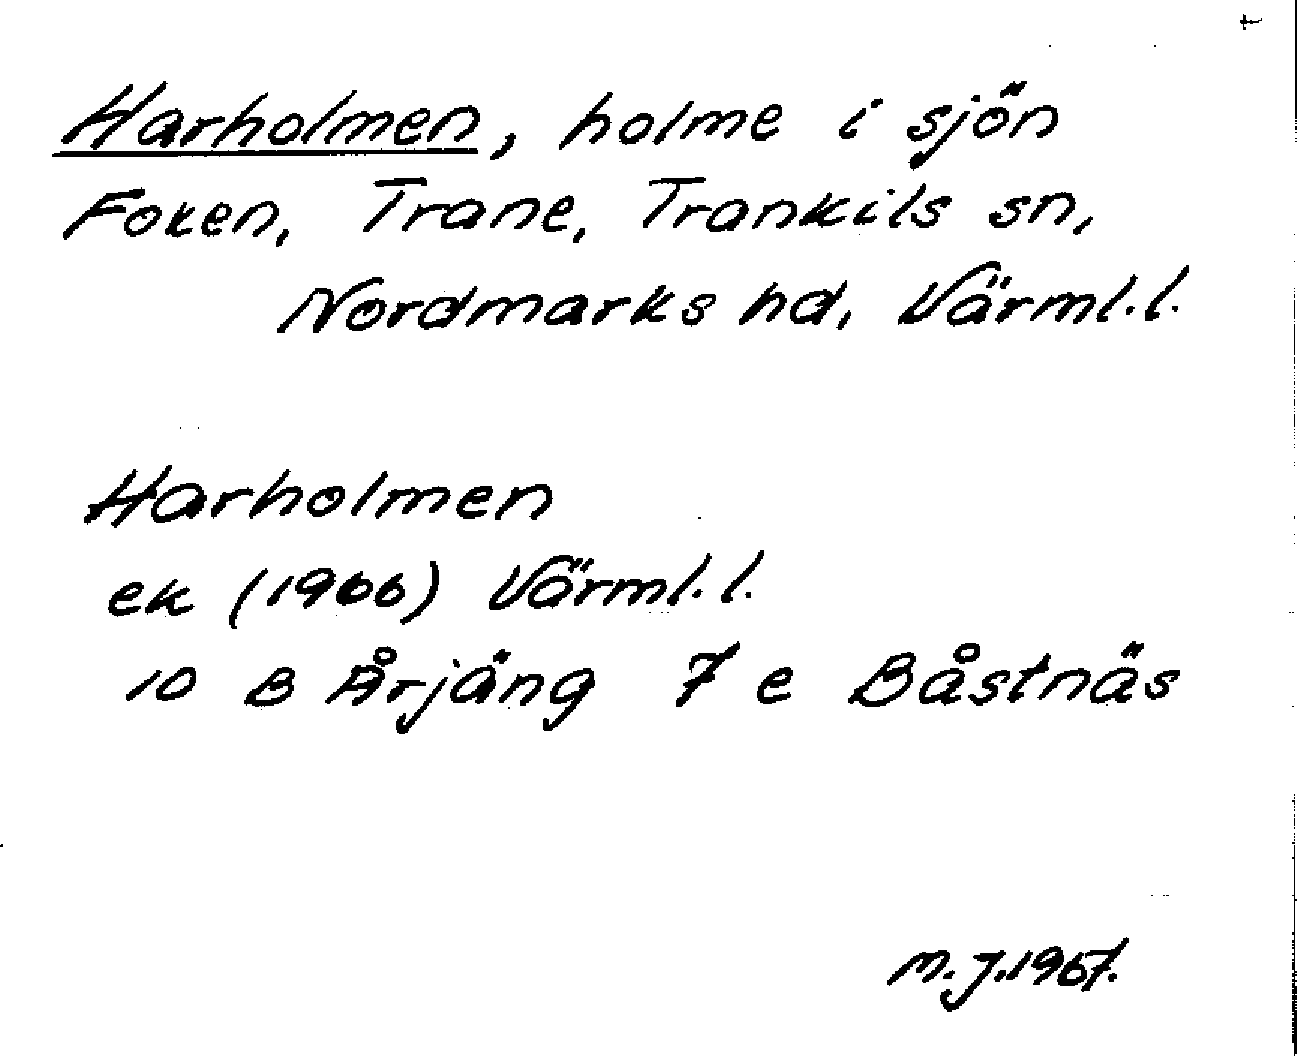 Harholmen, holme i sjön
Foxen, Trane, Trankils sn,
Nordmarks hd, Värml.l.
Harholmen
ek (1966) Värml.l.
10 B Årjäng 7 e Båstnäs
M.J.1967.